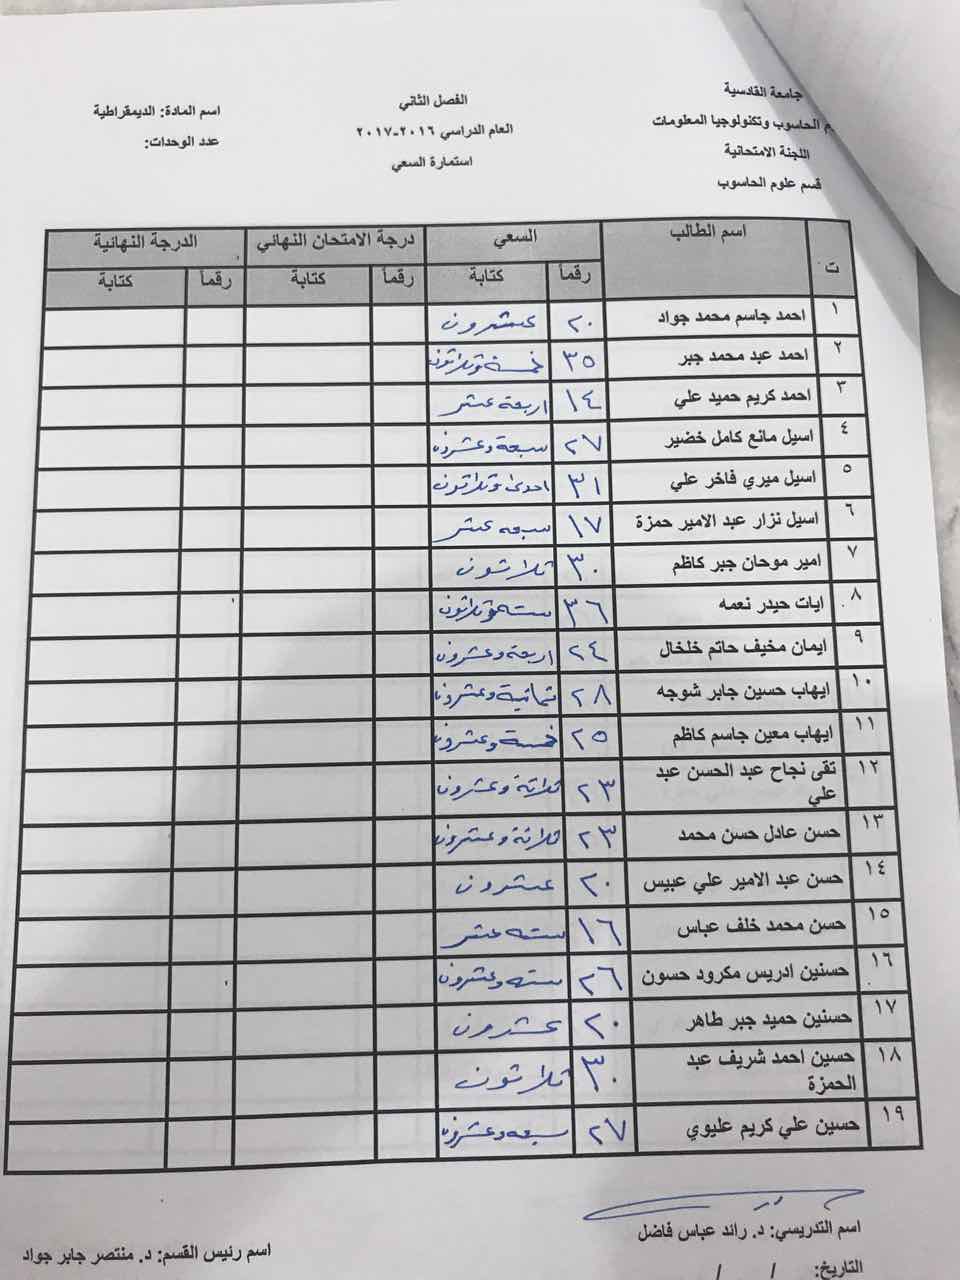 جامعة القادسية
م الحاسوب وتكنولوجيا المعلومات
اللجنة الامتحانية
قسم علوم الحاسوب
الفصل الثاني
العام الدراسي ٢٠١٦-٢٠١٧
استمارة السعي
اسم المادة: الديمقراطية
عدد الوحدات:
ت اسم الطالب السعي درجة الامتحان النهائي الدرجة النهائية
رقماً كتابة رقماً كتابة رقماً كتابة
١ احمد جاسم محمد جواد ٢٠ عشرون
٢ احمد عبد محمد جبر ٣٥ خمسة وثلاثون
٣ احمد كريم حميد علي ١٤ اربعة عشر
٤ اسيل مانع كامل خضير ٢٧ سبعة وعشرون
٥ اسيل ميري فاخر علي ٣١ احدى وثلاثون
٦ اسيل نزار عبد الامير حمزة ١٧ سبعه عشر
٧ امير موحان جبر كاظم ٣٠ ثلاثون
٨ ايات حيدر نعمه ٣٦ سته وثلاثون
٩ ايمان مخيف حاتم خلخال ٢٤ اربعة وعشرون
١٠ ايهاب حسين جابر شوجه ٢٨ ثمانية وعشرون
١١ ايهاب معين جاسم كاظم ٢٥ خمسة وعشرون
١٢ تقى نجاح عبد الحسن عبد ٢٣ ثلاثة وعشرون
علي
١٣ حسن عادل حسن محمد ٢٣ ثلاثة وعشرون
١٤ حسن عبد الامير علي عبيس ٢٠ عشرون
١٥ حسن محمد خلف عباس ١٦ سته عشر
١٦ حسنين ادريس مكرود حسون ٢٦ سته وعشرون
١٧ حسنين حميد جبر طاهر ٢٠ عشرون
١٨ حسين احمد شريف عبد ٣٠ ثلاثون
الحمزة
١٩ حسين علي كريم عليوي ٢٧ سبعه وعشرون
اسم التدريسي: د. رائد عباس فاضل
التاريخ: / /
اسم رئيس القسم: د. منتصر جابر جواد